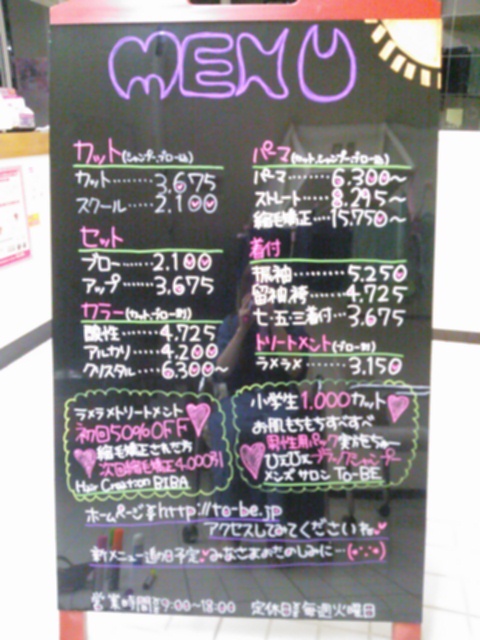 MENU
カット(シャンプー,ブロー込)
カット……3,675
スクール……2,100
セット
ブロー……2,100
アップ……3,675
カラー(カット,ブロー別)
酸性……4,725
アルカリ……4,200
クリスタル……6,300〜
パーマ(カット,シャンプー,ブロー込)
パーマ……6,300〜
ストレート……8,295〜
縮毛矯正……15,750〜
着付
振袖……5,250
留袖,袴……4,725
七・五・三着付…3,675
トリートメント(ブロー別)
ラメラメ……3,150
ラメラメトリートメント
初回50%OFF
縮毛矯正された方
次回縮毛矯正4,000引
Hair Creation BIBA
小学生1,000カット
お肌もちもちすべすべ
男性用パック実かもちゅー
メンズサロン TO-BE
ホームページ http://to-be.jp
アクセスしてみてくださいね
新メニュー追加予定 みなさまおたのしみに…
営業時間 9:00〜18:00 定休日 毎週火曜日